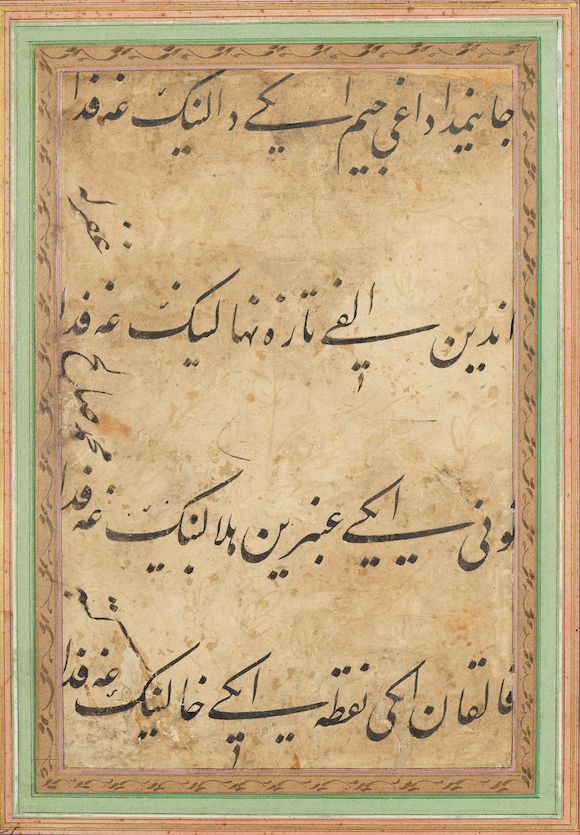 جانیمدا داغی جیم ایکی دالینک غه فدا
اندین الفی تازه نهالینک غه فدا
نونی ایکی عنبرین هلالینک غه فدا
قالقان ایکی نقطه ایکی خالینک غه فدا
محمد صالح